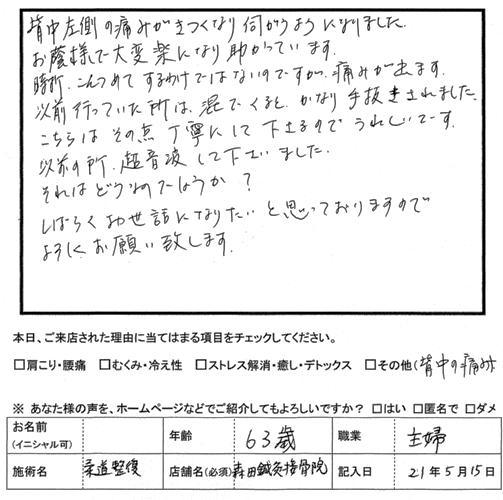 背中左側の痛みがきつくなり伺がうようになりました。
お蔭様で大変楽になり助かっています。
時折、こんつめてするわけではないのですが、痛みが出ます。
以前行っていた所は、混でくると、かなり手抜きされました。
こちらはその点丁寧にして下さるのでうれしいです。
以前の所、超音波して下さいました。
それはどうなのでしょうか？
しばらくお世話になりたいと思っておりますので
よろしくお願い致します。
本日、ご来店された理由に当てはまる項目をチェックしてください。
□肩こり・腰痛 □むくみ・冷え性 □ストレス解消・癒し・デトックス □その他(背中の痛み)
※ あなた様の声を、ホームページなどでご紹介してもよろしいですか？ □はい □匿名で □ダメ
お名前 (イニシャル可) 年齢 63歳 職業 主婦
施術名 柔道整復 店舗名(必須) 森田鍼灸接骨院 記入日 21年5月15日